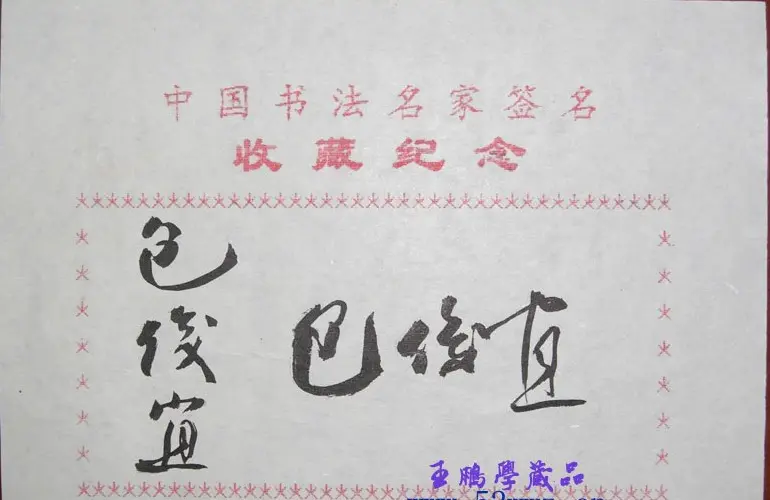 中国书法名家签名
收藏纪念
包俊宜
包俊宜
王鹏学藏品